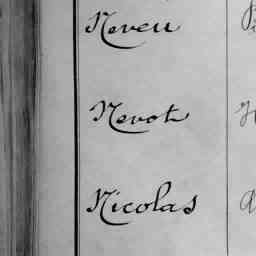 Neveu
Nevot
Nicolas